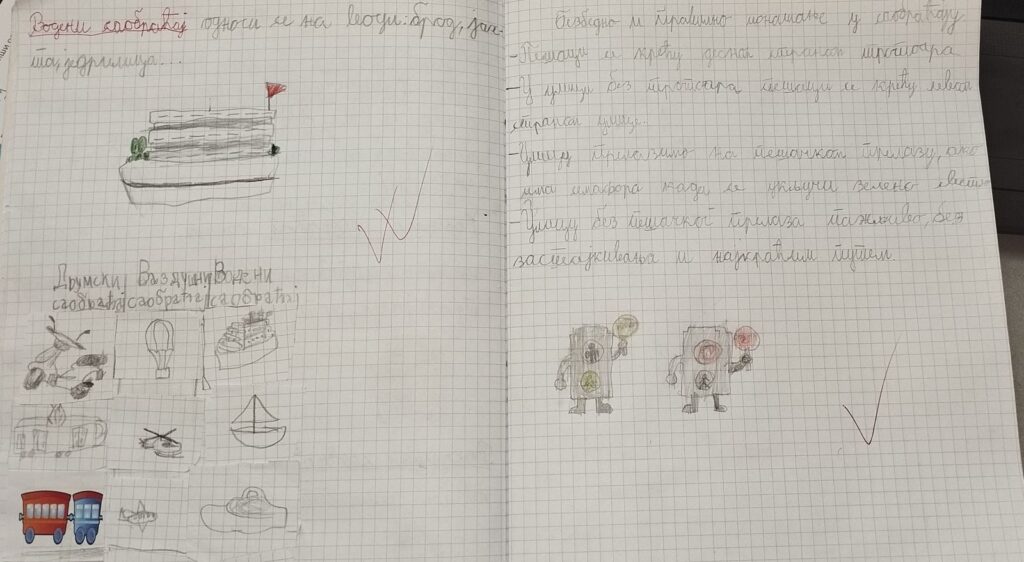 Водени саобраћај односи се на води: брод, јах-
та, једрилица...
Друмски Ваздушни Водени
саобраћај саобраћај саобраћај
Безбедно и правилно понашање у саобраћају
-Пешаци се крећу десном страном тротоара
-У улици без тротоара пешаци се крећу левом
страном улице.
-Улицу прелазимо на пешачком прелазу, ако
има семафора када се укључи зелено светло
-Улицу без пешачког прелаза пажљиво, без
застајкивања и најкраћим путем.